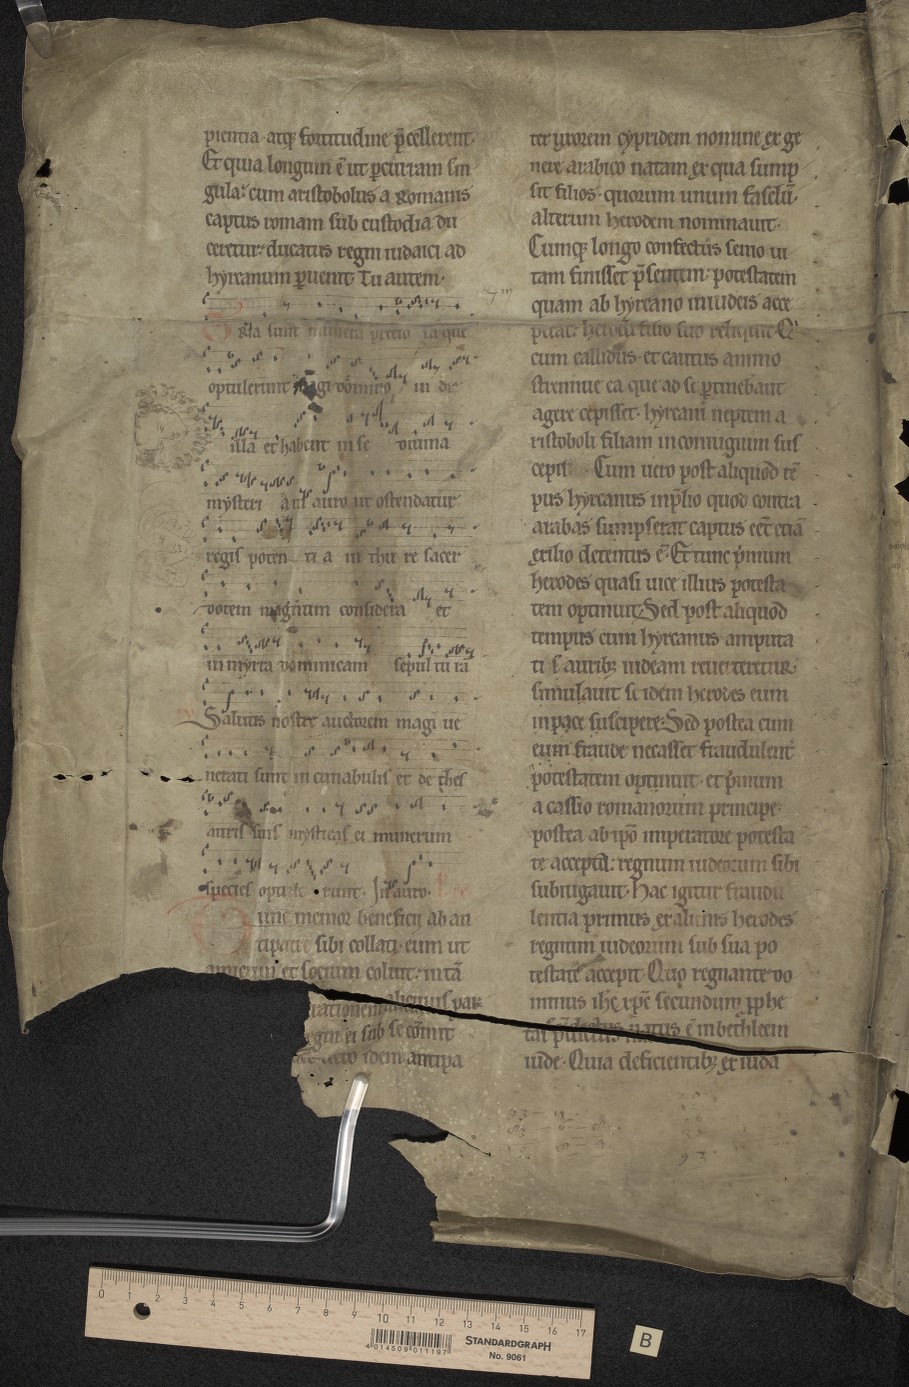 pientia atqꝫ fortitudine p̄cellerent·
Et quia longum ē ut ꝑcurram sin
gula· cum aristobolus a Romanis
captus romam sub custodia du
ceretur· ducatus regni iudaici ad
hyrcanum ꝑuenit Tu autem·
Tria sunt munera precio sa que
optulerunt magi domino in di e
illa et habent in se diuina
mysteri a In auro ut ostendatur
regis poten ti a in thu re sacer
dotem magnum considera et
in myrra dominicam sepul tu rā
Salutis nostre auctorem magi ue
nerati sunt in cunabulis et de thes
auris suis mysticas ei munerum
species optule runt· In auro·
unc memor beneficij ab an
tipatre sibi collati· eum ut
amicum et socium coluit· in tā
alienius par
regni ei sub se cōmit
uero idem antipa
ter uxorem cypridem nomine ex ge
nere arabico natam ex qua sump
sit filios· quorum unum faselū·
alterum herodem nominauit·
Cumqꝫ longo confectus senio ui
tam finisset p̄sentem· potestatem
quam ab hyrcano in iudeis acce
perat· herodi filio suo reliquit· Q
cum callidus· et cautus animo
strennue ea que ad se ꝑtinebant
agere cepisset· hyrcani neptem a
ristoboli filiam in coniugium sus
cepit Cum uero post aliquod tē
pus hyrcanus in p̄lio quod contra
arabas sumpserat captus eēt etiā
exilio detentus ē· Et tunc p̄mum
herodes quasi uice illius potesta
tem optinuit· Sed post aliquod
tempus cum hyrcanus amputa
ti s auribꝫ iudeam reuerteretur·
simulauit se idem herodes eum
in pace suscipere· Sed postea cum
eum fraude necasset fraudulent
potestatem optinuit· et p̄mum
a cassio romanorum principe·
postea ab ip̄o imperatore potesta
te accepta· regnum iudeorum sibi
subiugauit· Hac igitur fraudu
lentia primus ex alienis herodes
regnum iudeorum sub sua po
testate accepit Quo regnante do
minus ih̄c xp̄c secundum ꝓphe
tas p̄dictus natus ē in bethleem
iude· Quia deficientibꝫ ex iuda
0 1 2 3 4 5 6 7 8 9 10 11 12 13 14 15 16 17
4 014509 011197
STANDARDGRAPH
No. 9061
B